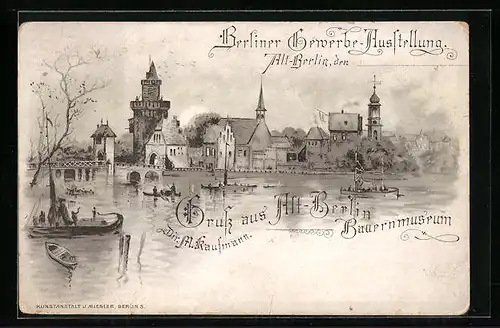 Berliner Gewerbe-Ausstellung.
Alt-Berlin, den
Gruß aus Alt Berlin
Bauernmuseum
Dir. M. Kaufmann.
KUNSTANSTALT J. MIESLER, BERLIN S.